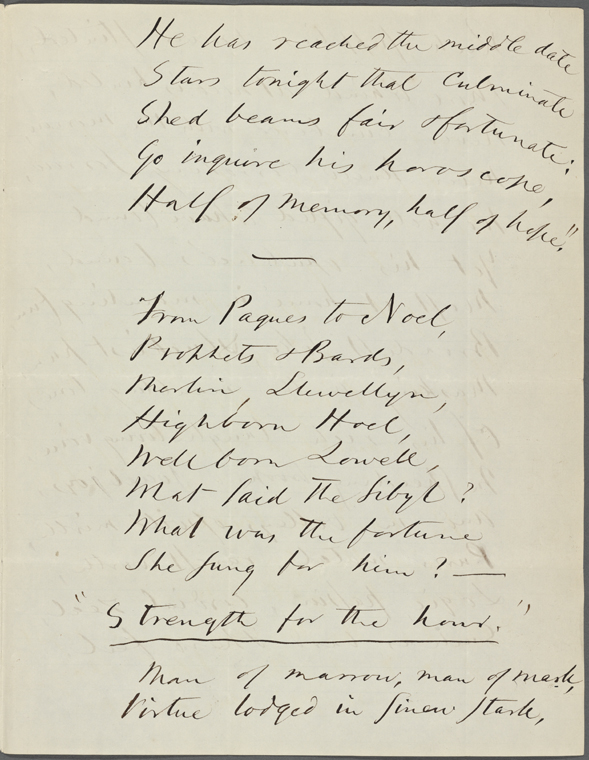 He has reached the middle date
Stars tonight that Culminate
Shed beams fair & fortunate:
Go inquire his horoscope,
Half of memory, half of hope."
—
From Paques to Noel,
Prophets & Bards,
Merlin, Llewellyn,
Highborn Hoel,
Wellborn Lowell,
What said the Sibyl?
What was the fortune
She sung for him? —
"Strength for the hour."
Man of marrow, man of mark,
Virtue lodged in sinew stark,